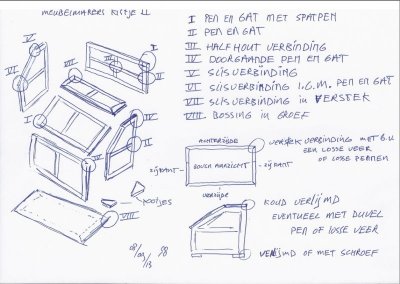 MEUBELMAKERS KISTJE LL
I PEN EN GAT MET SPATPEN
II PEN EN GAT
III HALFHOUT VERBINDING
IV DOORGAANDE PEN EN GAT
V SLISVERBINDING
VI SLISVERBINDING I.C.M. PEN EN GAT
VII SLISVERBINDING in VERSTEK
VIII. BOSSING in GROEF
I
II
III
IV
V
VI
VII
VIII
klosjes
08/03/13
ACHTERZIJDE
ZIJKANT
BOVEN AANZICHT
ZIJKANT
VOORZIJDE
VERSTEK VERBINDING MET B.V.
EEN LOSSE VEER
OF LOSSE PENNEN
KOUD VERLIJMD
EVENTUEEL MET DUVEL
PEN OF LOSSE VEER
VERLIJMD OF MET SCHROEF